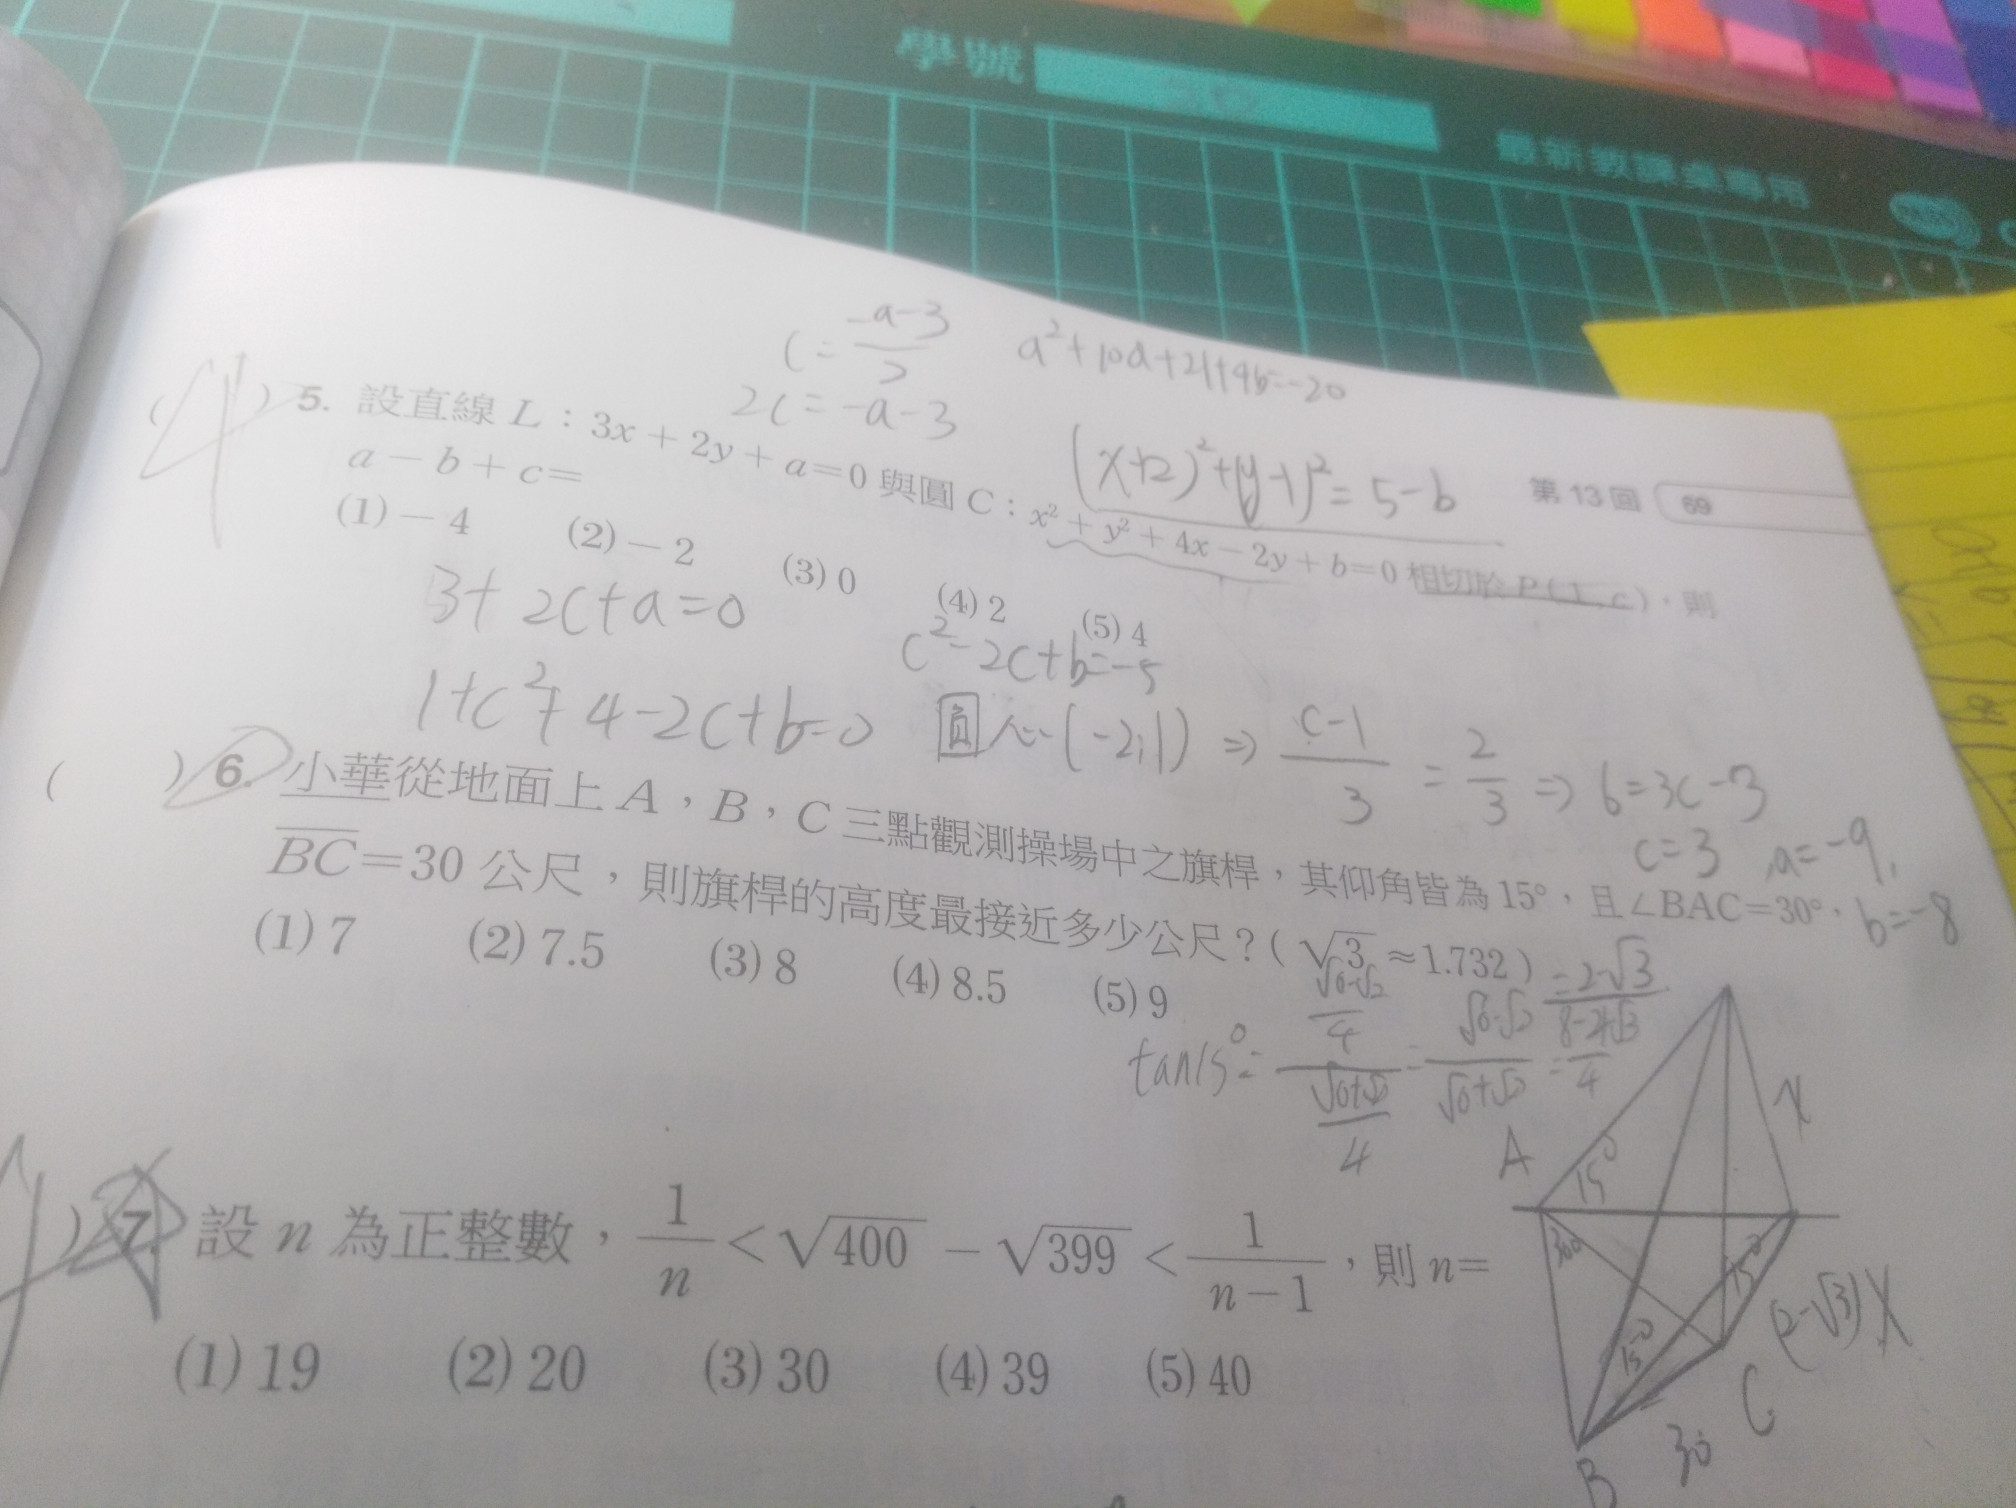 學號
最新教課桌專用
c = (-a-3)/2
a²+10a+21+4b=-20
2c = -a-3
(x+2)²+(y-1)²=5-b
第 13 回 69
4
( ) 5. 設直線 L：3x＋2y＋a＝0 與圓 C：x²＋y²＋4x－2y＋b＝0 相切於 P(1, c)，則
a－b＋c＝
(1)－4 (2)－2 (3) 0 (4) 2 (5) 4
3+2c+a=0
c²-2c+b=-5
1+c²+4-2c+b=0
圓心(-2,1) ⇒ (c-1)/3 = 2/3 ⇒ 6=3c-3
c=3, a=-9,
b=-8
( ) 6. 小華從地面上 A，B，C 三點觀測操場中之旗桿，其仰角皆為 15°，且∠BAC＝30°，
BC＝30 公尺，則旗桿的高度最接近多少公尺？( √3 ≈1.732 )
(1) 7 (2) 7.5 (3) 8 (4) 8.5 (5) 9
tan15° = ((√6-√2)/4)/((√6+√2)/4) = (√6-√2)/(√6+√2) = (8-2√3)/4
=2-√3
A
15°
x
30°
15°
15°
(2-√3)x
C
30
B
) 7. 設 n 為正整數，1/n＜√400－√399＜1/(n－1)，則 n＝
(1) 19 (2) 20 (3) 30 (4) 39 (5) 40